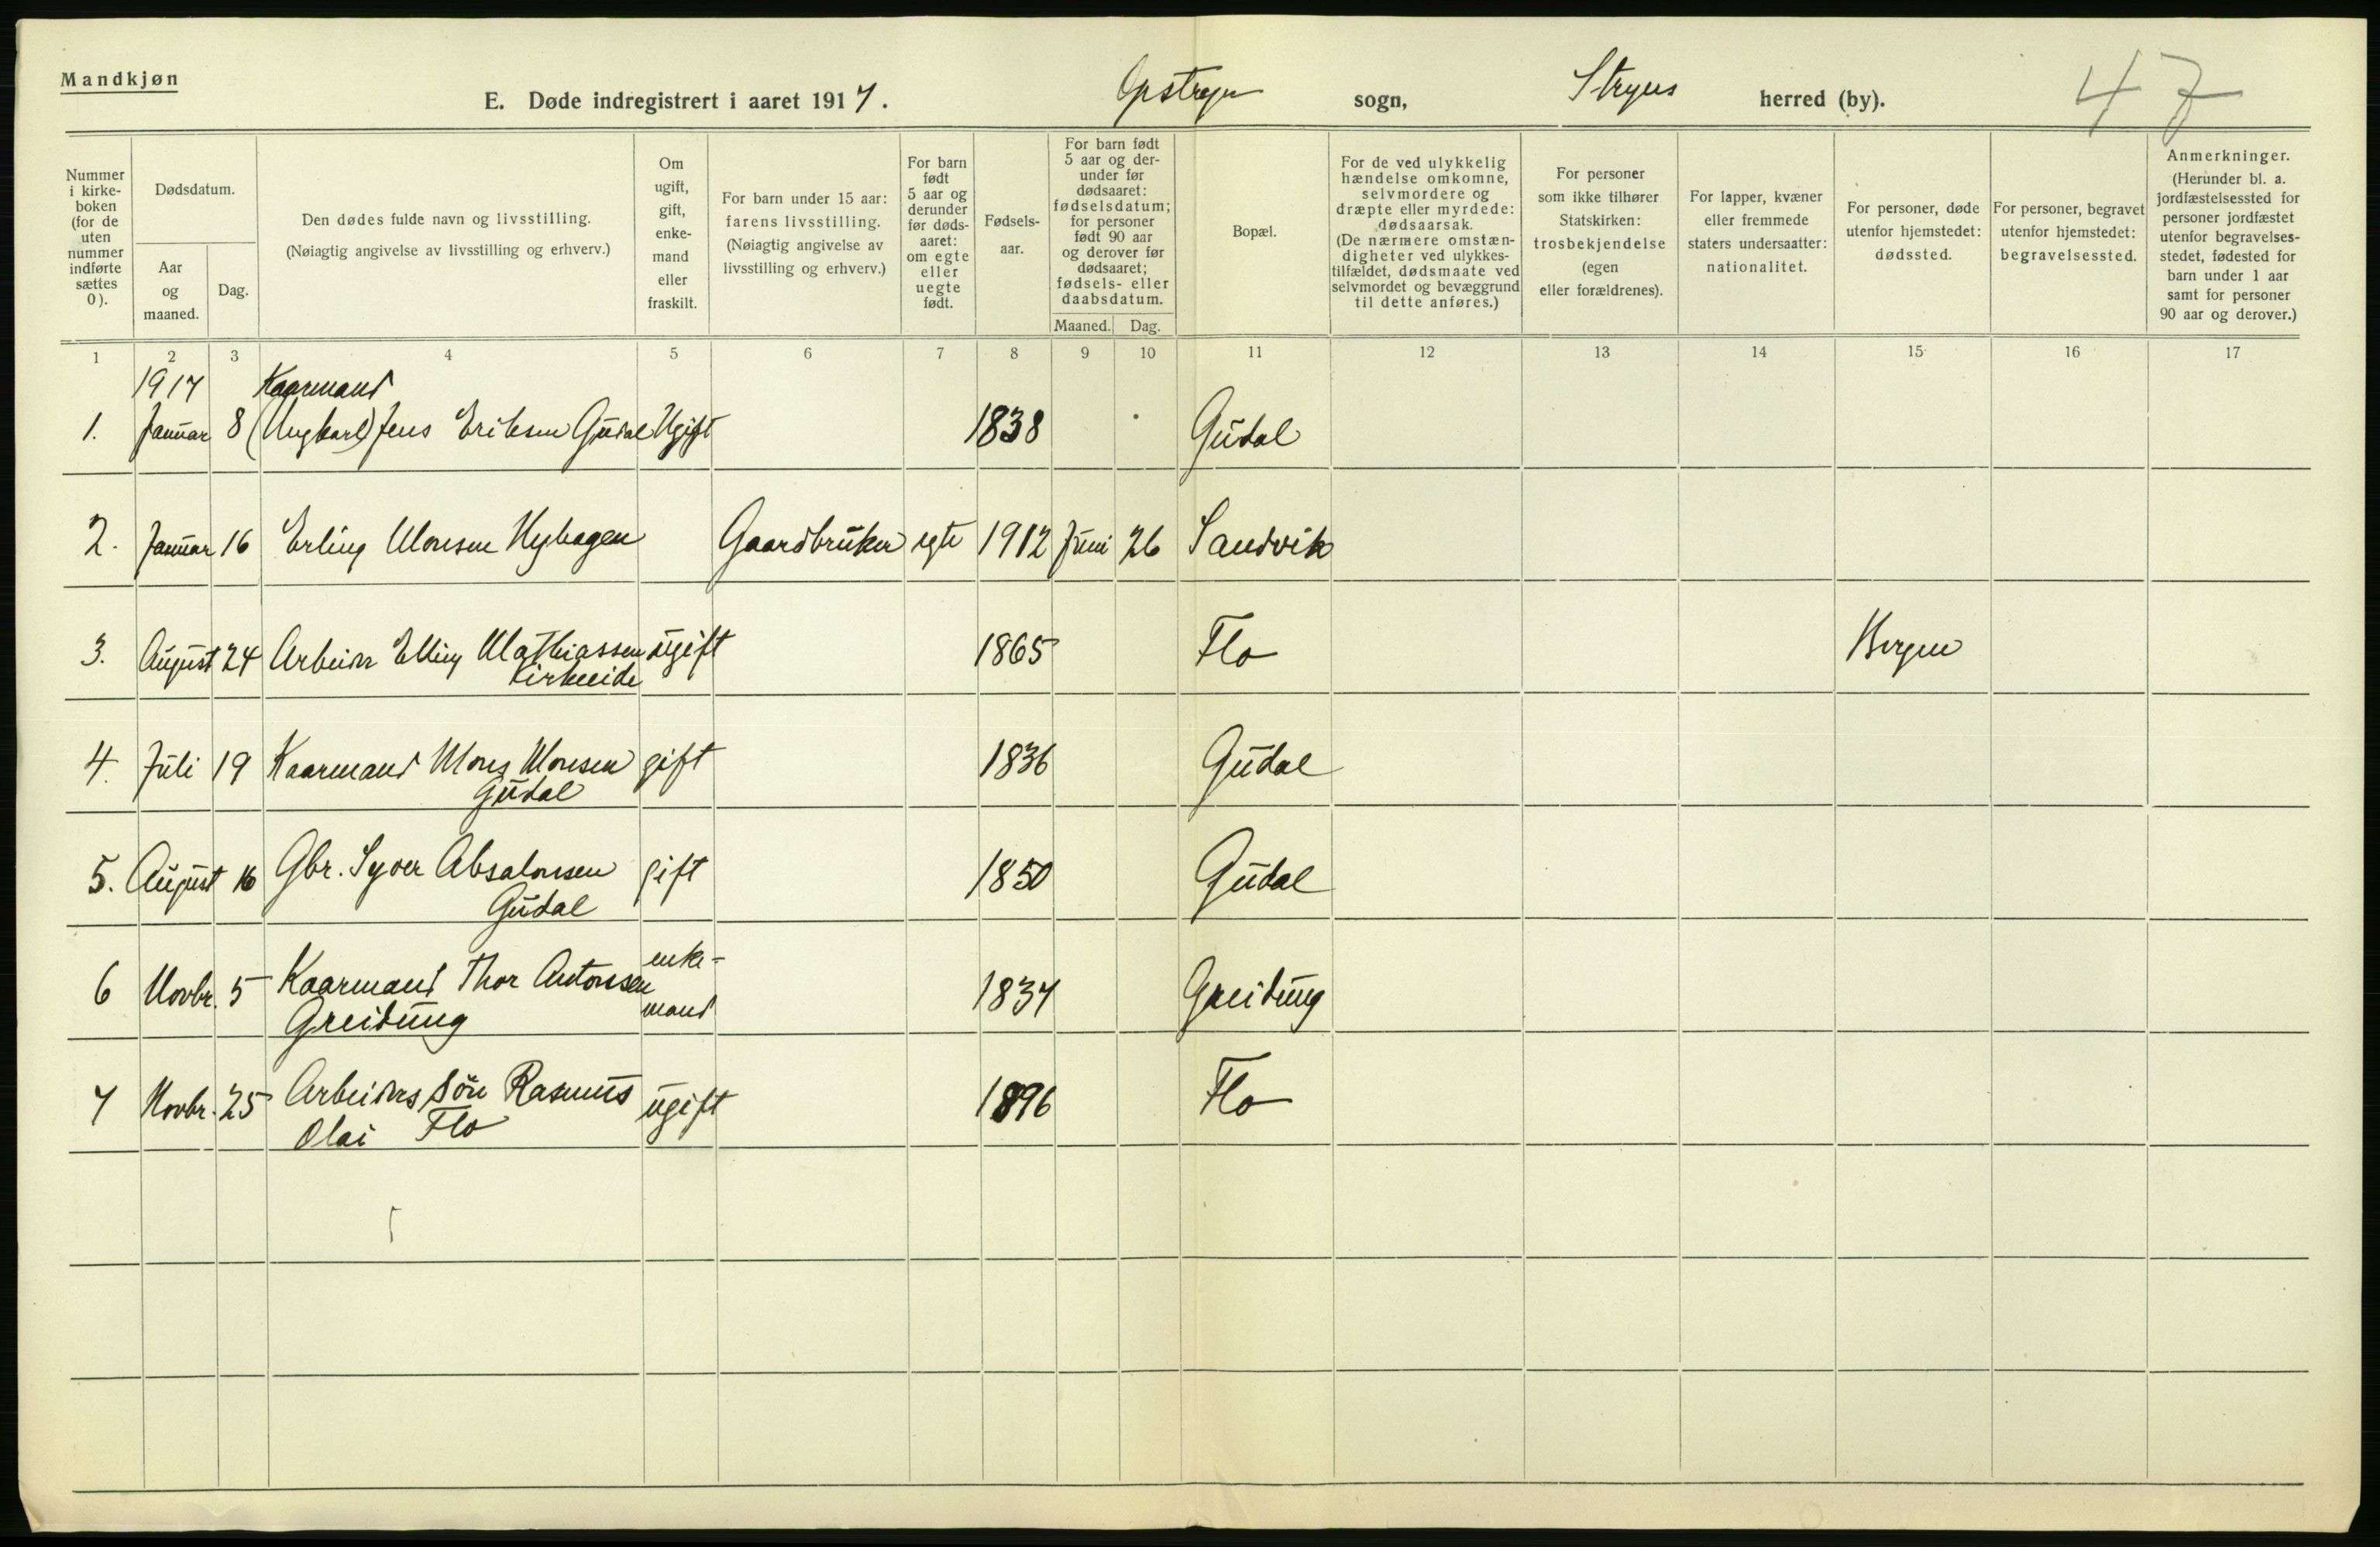 Mandkjøn
E. Døde indregistrert i aaret 1917. Opstryn sogn, Stryns herred (by). 47
Nummer i kirkeboken (for de uten nummer indførte sættes 0).
Dødsdatum.
Aar og maaned.
Dag.
Den dødes fulde navn og livsstilling.
(Nøiagtig angivelse av livsstilling og erhverv.)
Om ugift, gift, enkemand eller fraskilt.
For barn under 15 aar: farens livsstilling.
(Nøiagtig angivelse av livsstilling og erhverv.)
For barn født 5 aar og derunder før dødsaaret: om egte eller uegte født.
Fødselsaar.
For barn født 5 aar og derunder før dødsaaret: fødselsdatum; for personer født 90 aar og derover før dødsaaret; fødsels- eller daabsdatum.
Maaned. Dag.
Bopæl.
For de ved ulykkelig hændelse omkomne, selvmordere og dræpte eller myrdede: dødsaarsak.
(De nærmere omstændigheter ved ulykkestilfældet, dødsmaate ved selvmordet og bevæggrund til dette anføres.)
For personer som ikke tilhører Statskirken: trosbekjendelse (egen eller forældrenes).
For lapper, kvæner eller fremmede staters undersaatter: nationalitet.
For personer, døde utenfor hjemstedet: dødssted.
For personer, begravet utenfor hjemstedet: begravelsessted.
Anmerkninger.
(Herunder bl. a. jordfæstelsessted for personer jordfæstet utenfor begravelsesstedet, fødested for barn under 1 aar samt for personer 90 aar og derover.)
1 2 3 4 5 6 7 8 9 10 11 12 13 14 15 16 17
1917 Kaarmand
1. Januar 8 (Ungkarl) Jens Eriksen Gudal Ugift 1838 Gudal
2. Januar 16 Erling Monsen Nyhagen Gaardbruker egte 1912 Juni 26 Sandvik
3. August 24 Arbeider Elling Mathiassen ugift 1865 Flo Bergen
Kirkeeide
4. Juli 19 Kaarmand Mons Monsen gift 1836 Gudal
Gudal
5. August 16 Gbr. Syver Absalonsen gift 1850 Gudal
Gudal
6 Novbr. 5 Kaarmand Thor Antonssen enke- 1837 Greidung
Greidung mand
7 Novbr. 25 Arbeiders søn Rasmus ugift 1896 Flo
Olai Flo